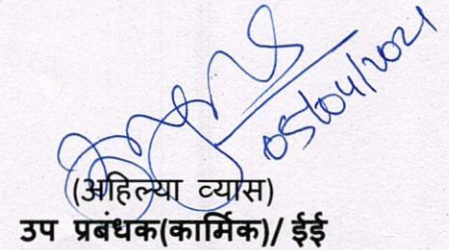 05/04/2021
(अहिल्या व्यास)
उप प्रबंधक(कार्मिक)/ ईई